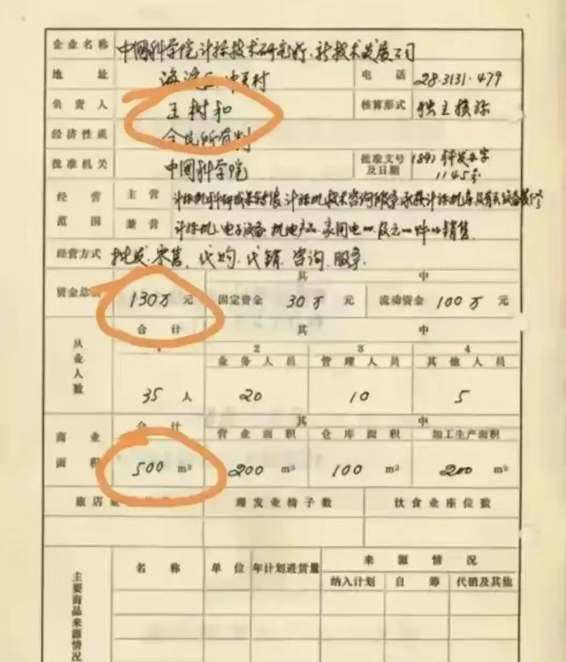 企业名称 中国科学院计算技术研究所新技术发展公司
地址 海淀区中关村 电话 28.3131.479
负责人 王树和 核算形式 独立核算
经济性质 全民所有制
批准机关 中国科学院 批准文号及日期 1145号
经营范围 主营 计算机科研成果转让,计算机技术咨询服务,承接计算机房及有关设备装修
兼营 计算机、电子设备、机电产品、家用电
经营方式 批发.零售.代购.代销.咨询.服务.
资金总额 130万元 其中 固定资金 30万元 流动资金 100万元
从业人数 合计 其中
1 2 3 4
业务人员 管理人员 其他人员
35人 20 10 5
商业面积 合计 其中
营业面积 仓库面积 加工生产面积
500 m² 200 m² 100 m² 200 m²
旅店 理发业椅子数 饮食业座位数
主要商品来源情况 名称 单位 年计划进货量 来源情况
纳入计划 自筹 代销及其他